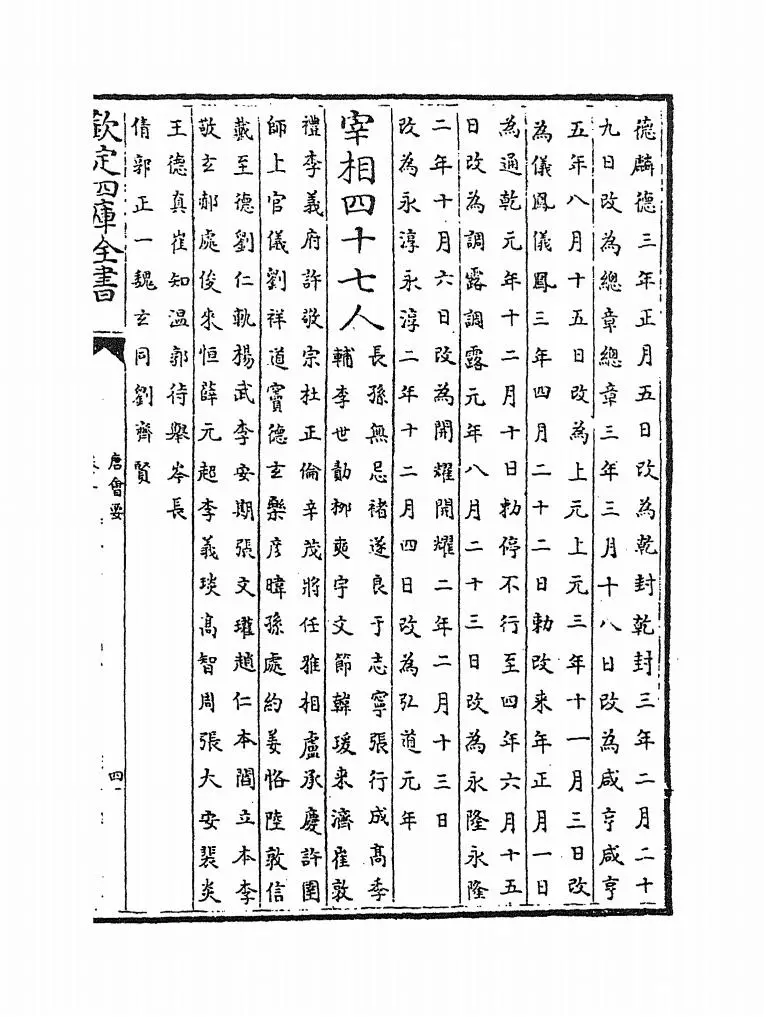 德麟德三年正月五日改為乾封乾封三年二月二十
九日改為總章總章三年三月十八日改為咸亨咸亨
五年八月十五日改為上元上元三年十一月三日改
為儀鳳儀鳳三年四月二十二日勅改来年正月一日
為通乾元年十二月十日勅停不行至四年六月十五
日改為調露調露元年八月二十三日改為永隆永隆
二年十月六日改為開耀開耀二年二月十三日
改為永淳永淳二年十二月四日改為弘道元年
宰相四十七人
長孫無忌褚遂良于志寧張行成髙季
輔李世勣栁奭宇文節韓瑗来濟崔敦
禮李義府許敬宗杜正倫辛茂將任雅相盧承慶許圉
師上官儀劉祥道竇德玄樂彦暐孫處約姜恪陸敦信
戴至德劉仁軌楊武李安期張文瓘趙仁本閻立本李
敬玄郝處俊来恒薛元超李義琰髙智周張大安裴炎
王德真崔知温郭待舉岑長
倩郭正一魏玄同劉齊賢
欽定四庫全書
唐會要
四